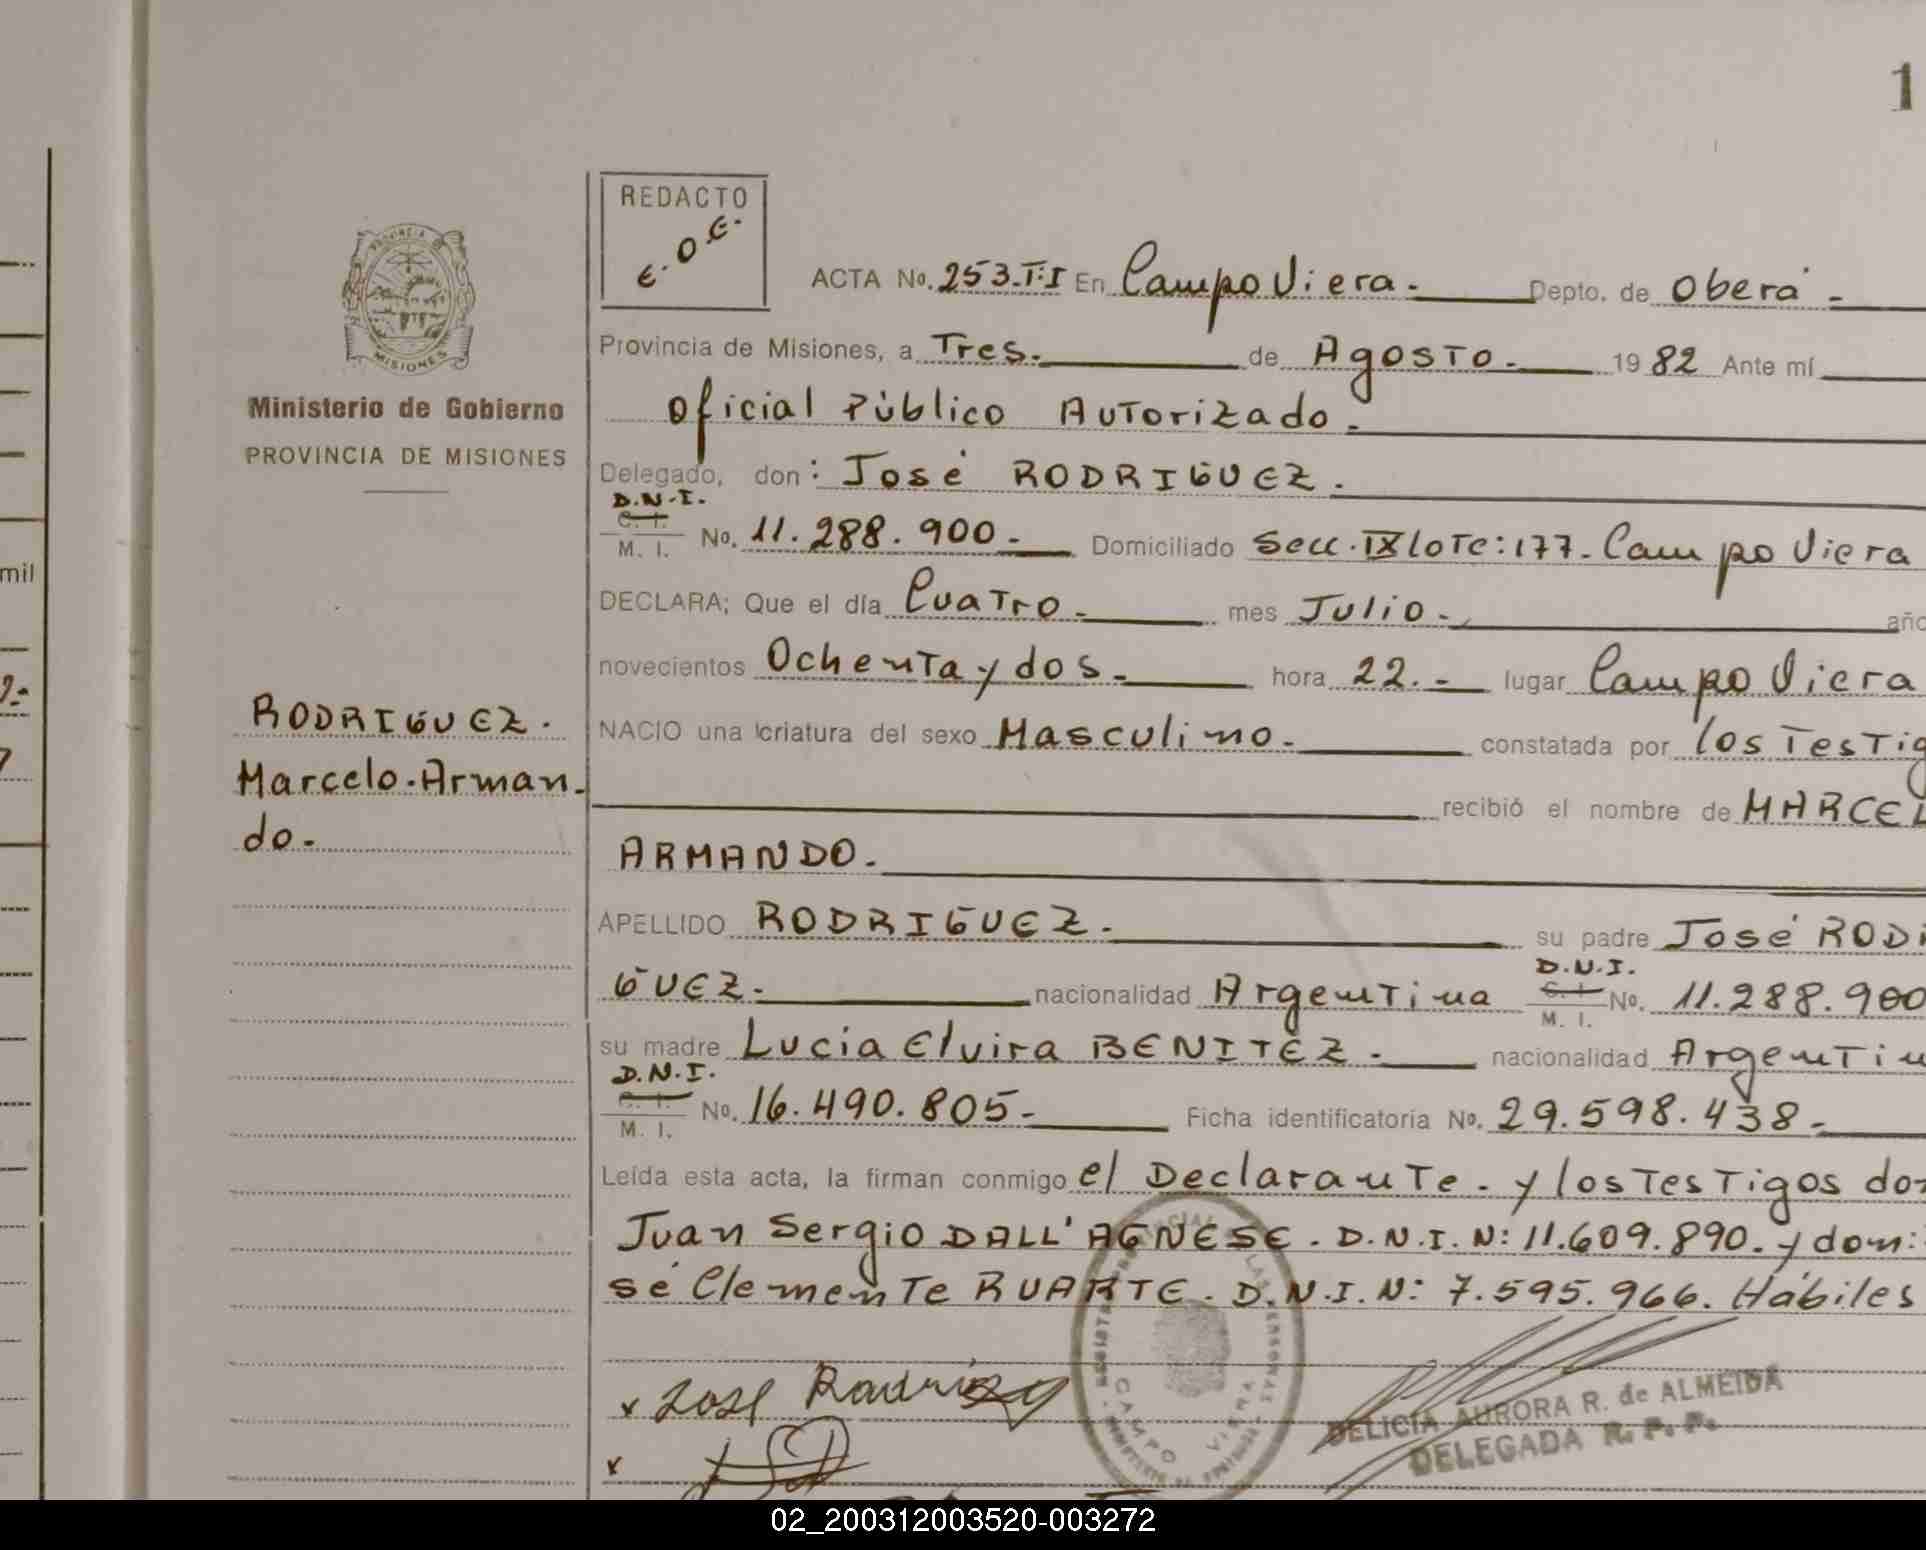 1
REDACTO
E. O. E.
PROVINCIA DE
MISIONES
Ministerio de Gobierno
PROVINCIA DE MISIONES
ACTA No. 253.T:I En Campo Viera.- Depto. de Oberá-
Provincia de Misiones, a Tres.- de Agosto.- 1982 Ante mí
Oficial Público Autorizado.-
Delegado, don: José RODRIGUEZ.
D.N.I.
C. I.
M. I. No. 11.288.900.- Domiciliado Secc.IX lote:177.Campo Viera
mil
DECLARA; Que el día Cuatro.- mes Julio.- año
novecientos Ochenta y dos.- hora 22.- lugar Campo Viera
RODRIGUEZ.
Marcelo.Arman-
do.-
NACIO una criatura del sexo Masculino.- constatada por los Testig
recibió el nombre de MARCEL
ARMANDO.-
APELLIDO RODRIGUEZ.- su padre José RODI
GUEZ.- nacionalidad Argentina D.N.I. C. I. M. I. No. 11.288.900
su madre Lucia Elvira BENITEZ.- nacionalidad Argentin
D.N.I.
C. I.
M. I. No. 16.490.805- Ficha identificatoria No. 29.598.438-
Leída esta acta, la firman conmigo el Declarante. y los Testigos don
Juan Sergio DALL'AGNESE. D.N.I.N: 11.609.890. y don:
sé Clemente RUARTE. D.N.I.N: 7.595.966. Hábiles
x José Rodriguez
x
CAMPO VIERA
DELICIA AURORA R. de ALMEIDA
DELEGADA R. P. P.
02_200312003520-003272